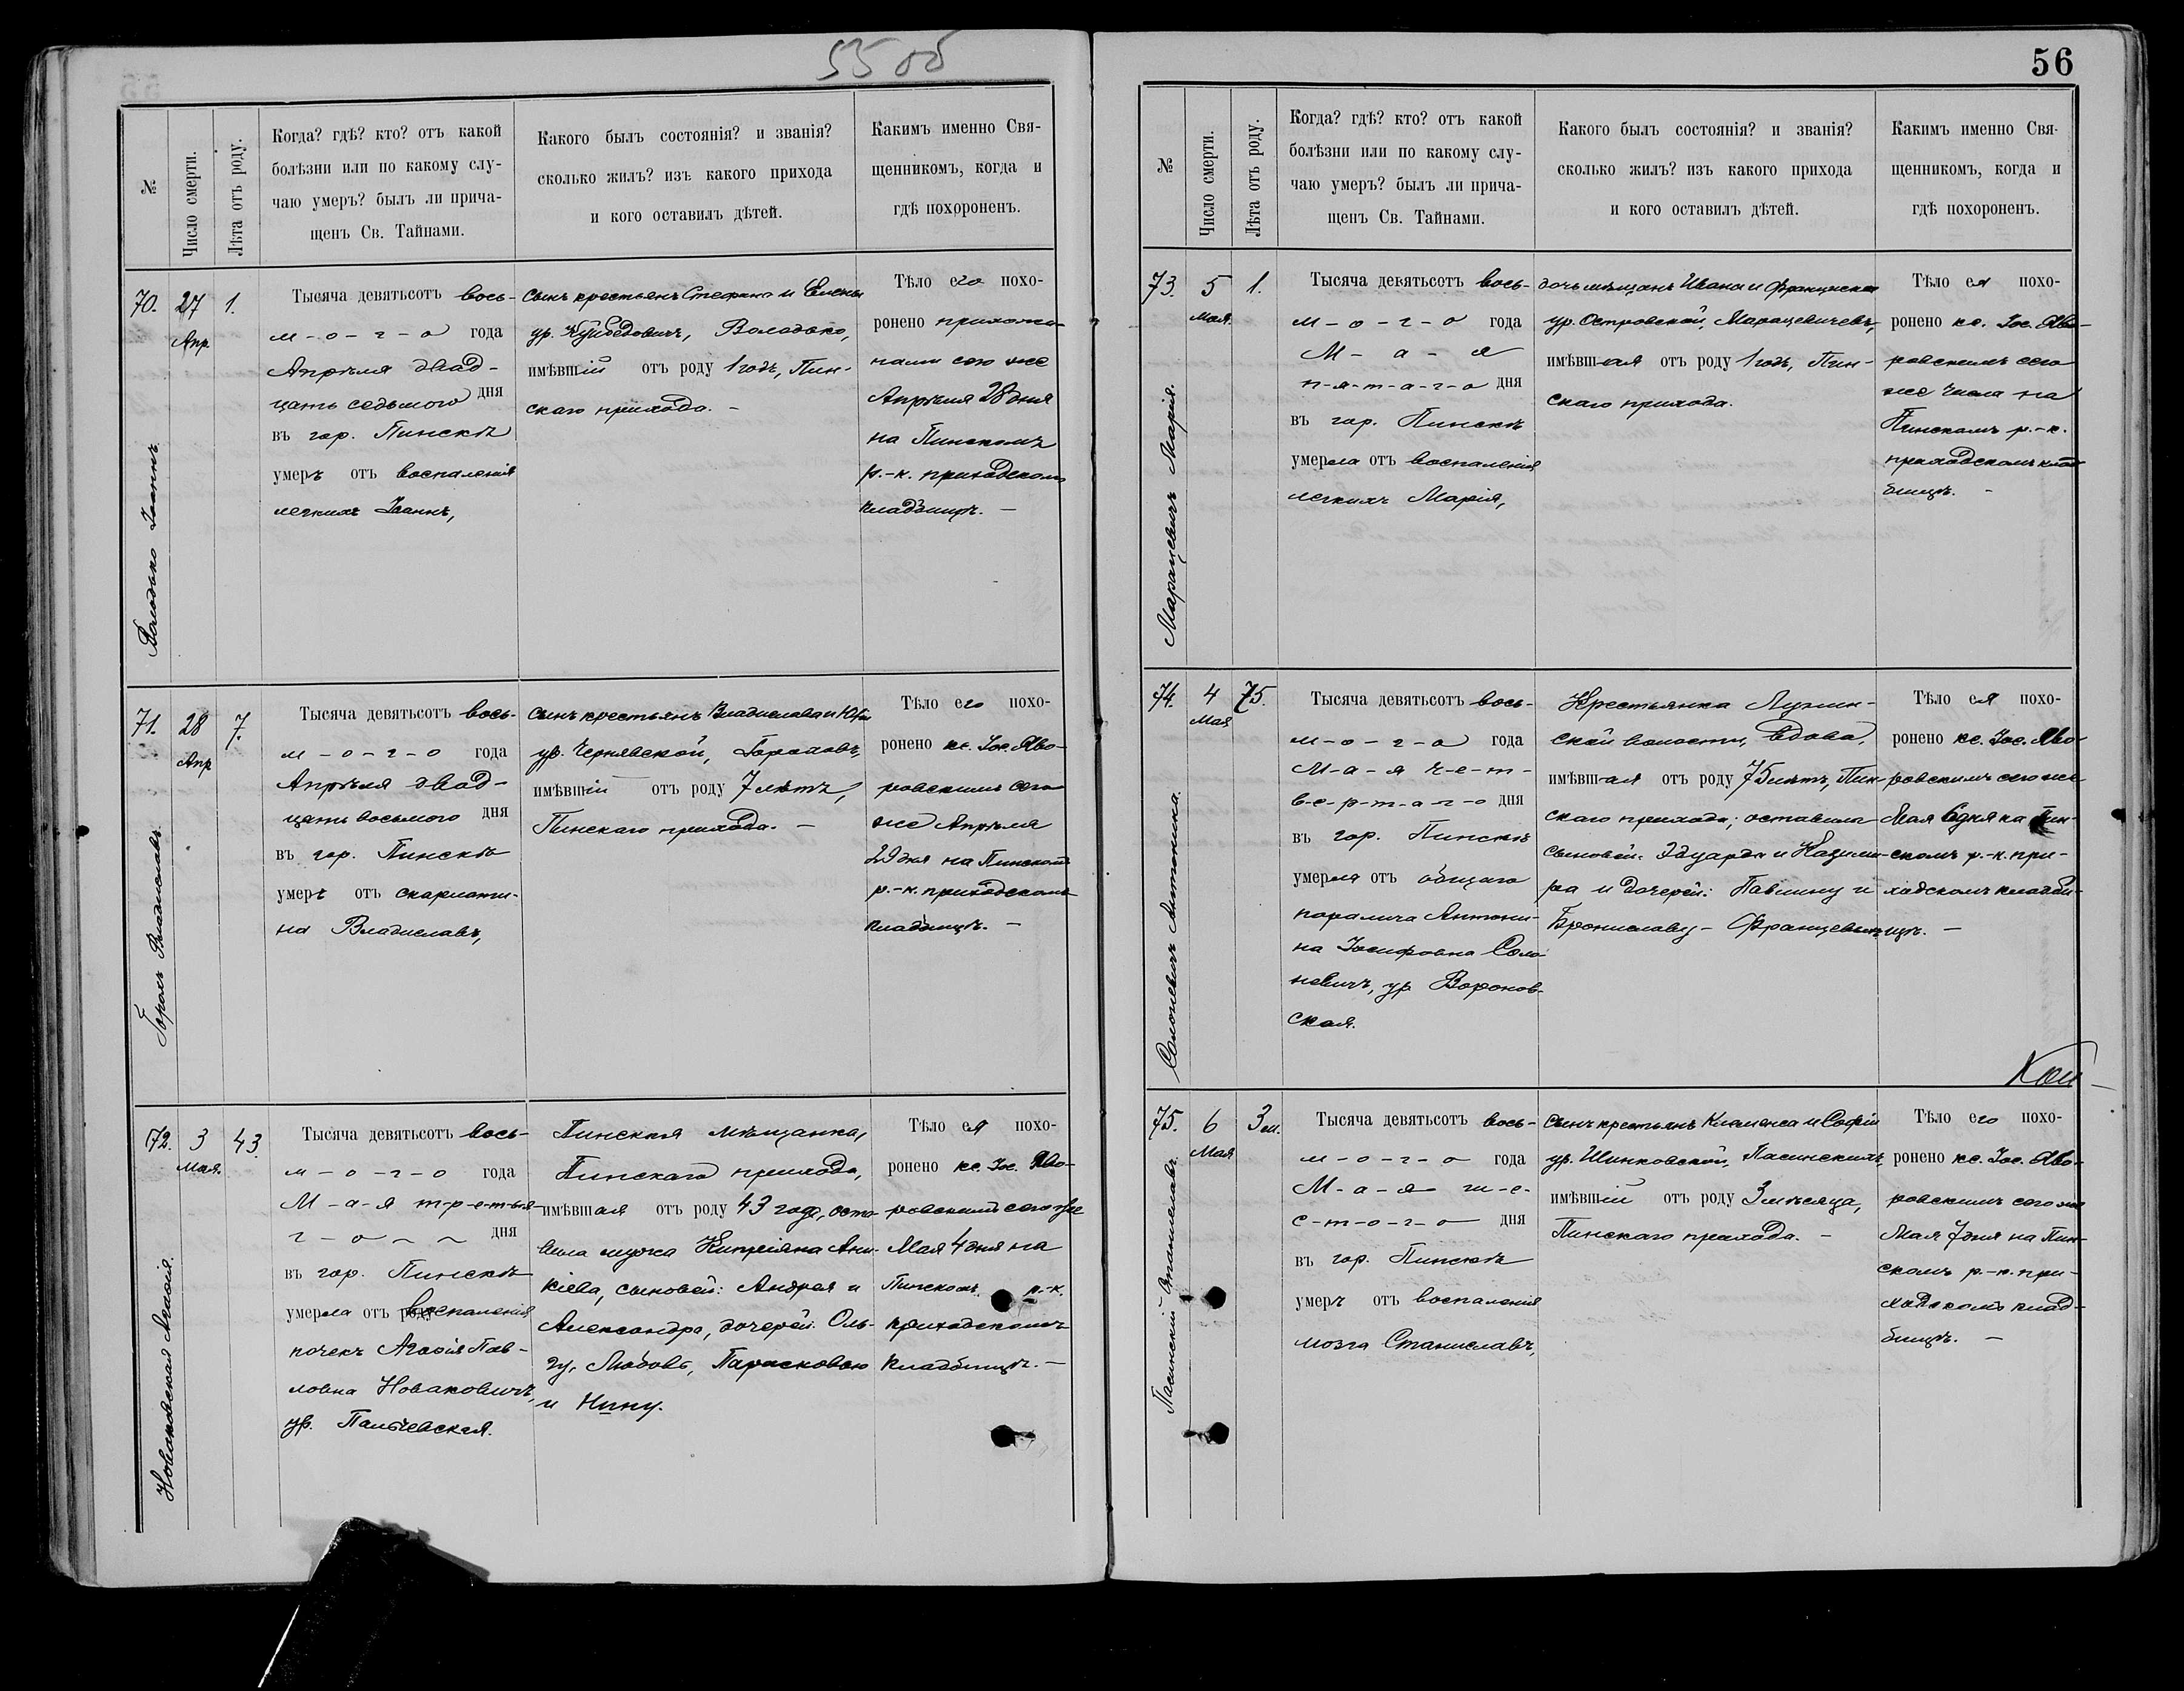 55 об
№
Число смерти.
Лѣта отъ роду.
Когда? гдѣ? кто? отъ какой
болѣзни или по какому слу-
чаю умеръ? былъ ли прича-
щенъ Св. Тайнами.
Какого былъ состоянія? и званія?
сколько жилъ? изъ какого прихода
и кого оставилъ дѣтей.
Какимъ именно Свя-
щенникомъ, когда и
гдѣ похороненъ.
70.
27
Апр.
1.
Володько Іоаннъ
Тысяча девятьсотъ вось-
м-о-г-о года
Апрѣля двад-
цать седьмого дня
въ гор. Пинскѣ
умеръ отъ воспаленія
легкихъ Іоаннъ,
сынъ крестьянъ Стефана и Елены
ур. Володько,
имѣвшій отъ роду 1 годъ, Пин-
скаго прихода. -
Тѣло его похо-
ронено прихожа-
нами сего же
Апрѣля 28 дня
на Пинскомъ
р.-к. приходскомъ
кладбищѣ. -
71.
28
Апр
7.
Горохъ Владиславъ.
Тысяча девятьсотъ вось-
м-о-г-о года
Апрѣля двад-
цать восьмого дня
въ гор. Пинскѣ
умеръ отъ скарлати-
на Владиславъ,
сынъ крестьянъ Владислава и
ур. Чернявской, Гороховъ,
имѣвшій отъ роду 7 лѣтъ,
Пинскаго прихода. -
Тѣло его похо-
ронено кс. Іос. Яво-
ровскимъ сего
же Апрѣля
29 дня на Пинскомъ
р.-к. приходскомъ
кладбищѣ. -
72.
3
Мая.
43.
Новаковская Агаѳія.
Тысяча девятьсотъ вось-
м-о-г-о года
М-а-я т-р-е-т-ь-я-
г-о- ~ ~ дня
въ гор. Пинскѣ
умерла отъ воспаленія
почекъ Агаѳія Пав-
ловна Новаковичъ,
ур. Пальчевская.
Пинская мѣщанка,
Пинскаго прихода,
имѣвшая отъ роду 43 года, оста-
вила мужа Кипріяна Ани-
кіева, сыновей: Андрея и
Александра, дочерей: Оль-
гу, Любовь, Парасковью
и Нину.
Тѣло ея похо-
ронено кс. Іос. Яво-
ровскимъ сего же
Мая 4 дня на
Пинскомъ р.-к.
приходскомъ
кладбищѣ. -
56
№
Число смерти.
Лѣта отъ роду.
Когда? гдѣ? кто? отъ какой
болѣзни или по какому слу-
чаю умеръ? былъ ли прича-
щенъ Св. Тайнами.
Какого былъ состоянія? и званія?
сколько жилъ? изъ какого прихода
и кого оставилъ дѣтей.
Какимъ именно Свя-
щенникомъ, когда и
гдѣ похороненъ.
73.
5
Мая.
1.
Марацевичъ Марія.
Тысяча девятьсотъ вось-
м-о-г-о года
М-а-я
п-я-т-а-г-о дня
въ гор. Пинскѣ
умерла отъ воспаленія
легкихъ Марія,
дочь мѣщанъ Ивана и Франциски
ур. Островской, Марацевичевъ,
имѣвшая отъ роду 1 годъ, Пин-
скаго прихода.
Тѣло ея похо-
ронено кс. Іос. Яво-
ровскимъ сего
же числа на
Пинскомъ р.-к.
приходскомъ клад-
бищѣ. -
74.
4
Мая
75.
Солоневичъ Антонина.
Тысяча девятьсотъ вось-
м-о-г-о года
М-а-я ч-е-т-
в-е-р-т-а-г-о дня
въ гор. Пинскѣ
умерла отъ общаго
паралича Антони-
на Іосифовна Соло-
невичъ, ур. Воронов-
ская.
Крестьянка Лунин-
ской волости, вдова,
имѣвшая отъ роду 75 лѣтъ, Пин-
скаго прихода; оставила
сыновей: Эдуарда и Казими-
ра и дочерей: Павлину и
Брониславу - Францевыхъ.
Тѣло ея похо-
ронено кс. Іос. Яво-
ровскимъ сего же
Мая 6 дня на Пин-
скомъ р.-к. при-
ходскомъ кладби-
щѣ. -
75.
6
Мая
3 м.
Пасинскій Станиславъ.
Тысяча девятьсотъ вось-
м-о-г-о года
М-а-я ш-е-
с-т-о-г-о дня
въ гор. Пинскѣ
умеръ отъ воспаленія
мозга Станиславъ,
сынъ крестьянъ Клеменса и Софіи
ур. Шинковской, Пасинскихъ,
имѣвшій отъ роду 3 мѣсяца,
Пинскаго прихода. -
Тѣло его похо-
ронено кс. Іос. Яво-
ровскимъ сего же
Мая 7 дня на Пин-
скомъ р.-к. при-
ходскомъ клад-
бищѣ. -